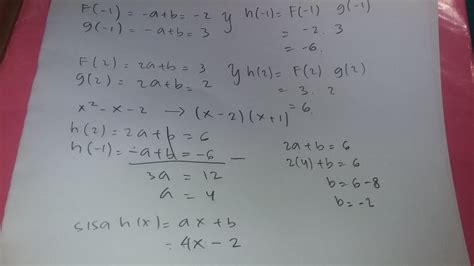 F(-1) = -a+b = -2 y h(-1) = F(-1) g(-1)
g(-1) = -a+b = 3 = -2. 3
= -6.
F(2) = 2a+b = 3 y h(2) = F(2) g(2)
g(2) = 2a+b = 2 = 3. 2
= 6.
x² - x - 2 → (x-2)(x+1)
h(2) = 2a+b = 6
h(-1) = -a+b = -6 -
3a = 12
a = 4
2a+b = 6
2(4)+b = 6
b = 6-8
b = -2
sisa h(x) = ax + b
= 4x - 2